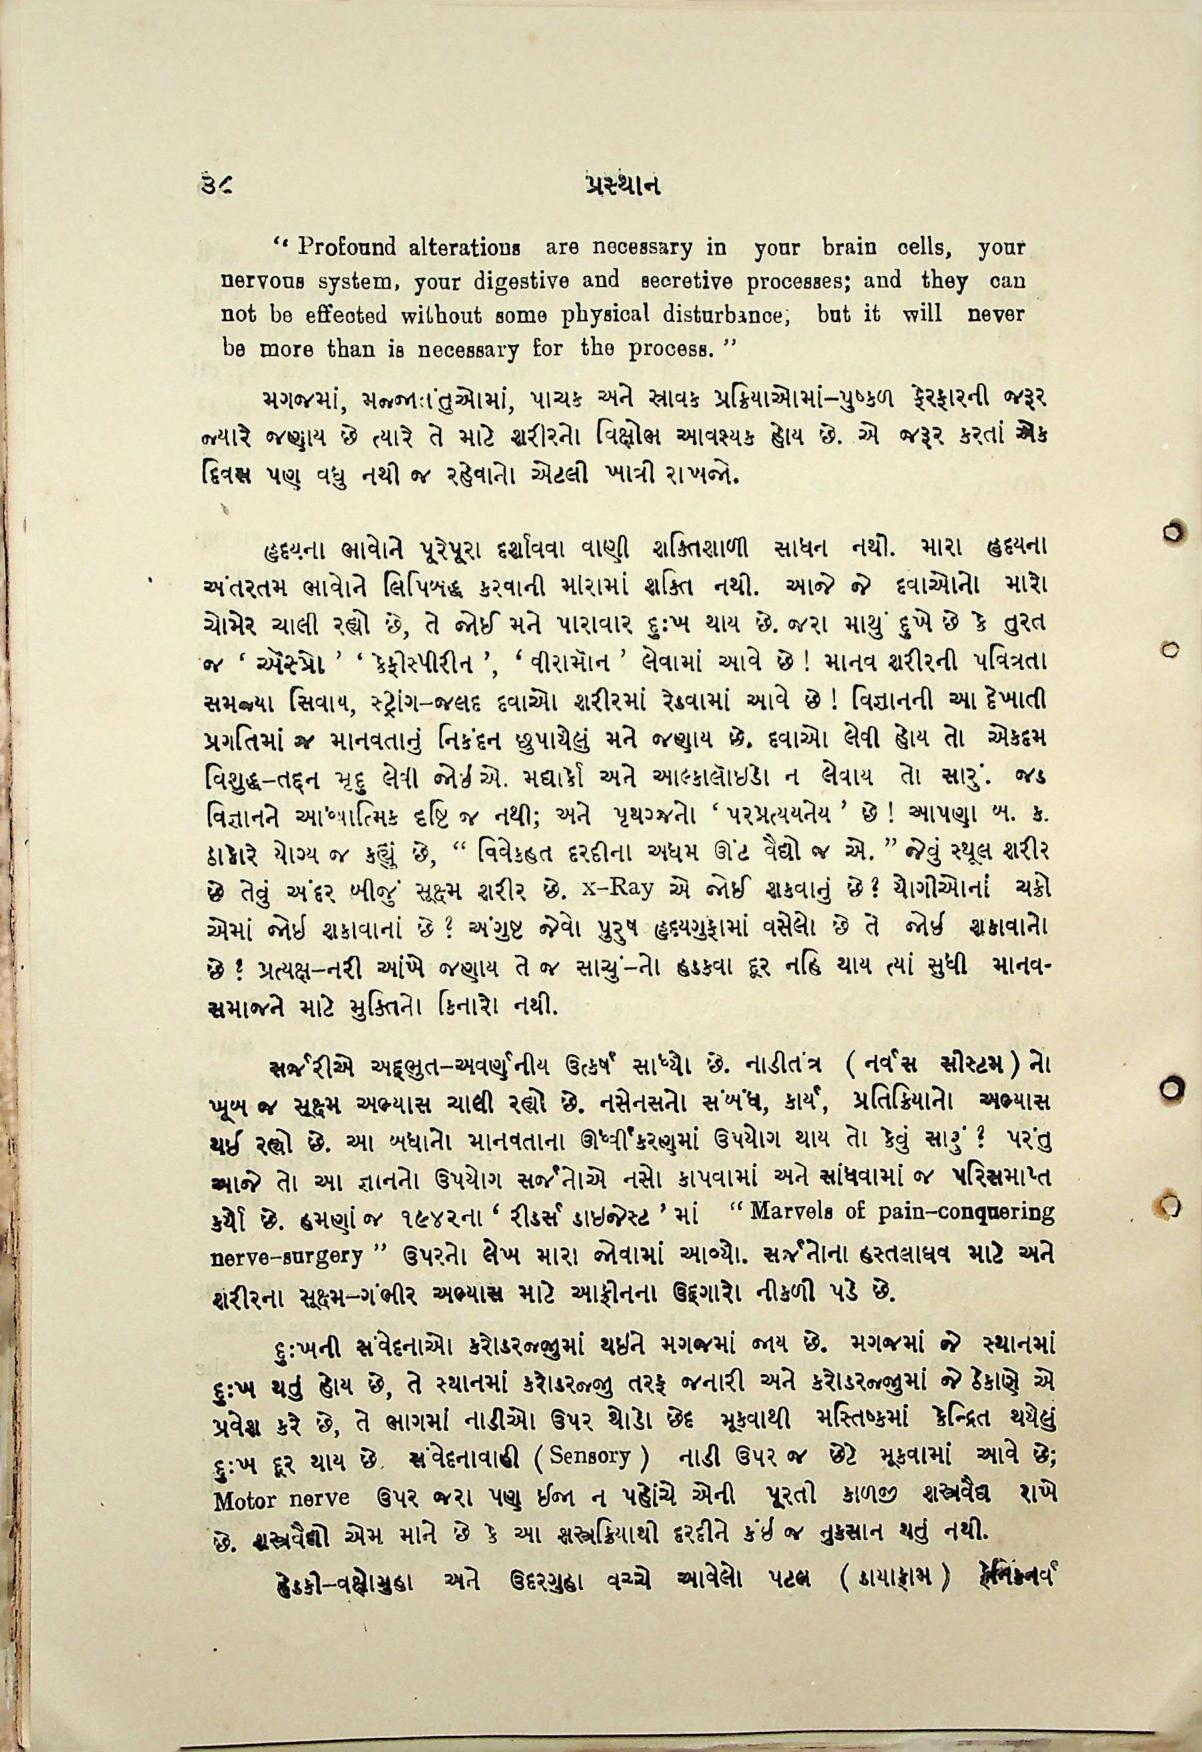 ૩૮
પ્રસ્થાન
“ Profound alterations are necessary in your brain cells, your
nervous system, your digestive and secretive processes; and they can
not be effected without some physical disturbance, but it will never
be more than is necessary for the process. ”
મગજમાં, મજ્જાતંતુઓમાં, પાચક અને સ્રાવક પ્રક્રિયાઓમાં–પુષ્કળ ફેરફારની જરૂર
જ્યારે જણાય છે ત્યારે તે માટે શરીરનો વિક્ષોભ આવશ્યક હોય છે. એ જરૂર કરતાં એક
દિવસ પણ વધુ નથી જ રહેવાનો એટલી ખાત્રી રાખજો.
હૃદયના ભાવોને પૂરેપૂરા દર્શાવવા વાણી શક્તિશાળી સાધન નથી. મારા હૃદયના
અંતરતમ ભાવોને લિપિબદ્ધ કરવાની મારામાં શક્તિ નથી. આજે જે દવાઓનો મારો
ચોમેર ચાલી રહ્યો છે, તે જોઈ મને પારાવાર દુઃખ થાય છે. જરા માથું દુખે છે કે તુરત
જ ‘ ઍસ્પ્રો ’ ‘ કેફીસ્પીરીન ’, ‘ વીરામૉન ’ લેવામાં આવે છે ! માનવ શરીરની પવિત્રતા
સમજ્યા સિવાય, સ્ટ્રોંગ–જલદ દવાઓ શરીરમાં રેડવામાં આવે છે ! વિજ્ઞાનની આ દેખાતી
પ્રગતિમાં જ માનવતાનું નિકંદન છુપાયેલું મને જણાય છે. દવાઓ લેવી હોય તો એકદમ
વિશુદ્ધ–તદ્દન મૃદુ લેવી જોઈએ. મદ્યાર્કો અને આલ્કાલૉઇડો ન લેવાય તો સારું. જડ
વિજ્ઞાનને આધ્યાત્મિક દૃષ્ટિ જ નથી; અને પૃથગ્જનો ‘ પરપ્રત્યયનેય ’ છે ! આપણા બ. ક.
ઠાકોરે યોગ્ય જ કહ્યું છે, “ વિવેકહત દરદીના અધમ ઊંટ વૈદ્યો જ એ. ” જેવું સ્થૂલ શરીર
છે તેવું અંદર બીજું સૂક્ષ્મ શરીર છે. x-Ray એ જોઈ શકવાનું છે ? યોગીઓનાં ચક્રો
એમાં જોઈ શકાવાનાં છે ? અંગુષ્ટ જેવો પુરુષ હૃદયગુફામાં વસેલો છે તે જોઈ શકાવાનો
છે ? પ્રત્યક્ષ–નરી આંખે જણાય તે જ સાચું–નો હડકવા દૂર નહિ થાય ત્યાં સુધી માનવ-
સમાજને માટે મુક્તિનો કિનારો નથી.
સર્જરીએ અદ્ભુત–અવર્ણનીય ઉત્કર્ષ સાધ્યો છે. નાડીતંત્ર ( નર્વસ સીસ્ટમ ) નો
ખૂબ જ સૂક્ષ્મ અભ્યાસ ચાલી રહ્યો છે. નસેનસનો સંબંધ, કાર્ય, પ્રતિક્રિયાનો અભ્યાસ
થઈ રહ્યો છે. આ બધાનો માનવતાના ઊર્ધ્વીકરણમાં ઉપયોગ થાય તો કેવું સારું ? પરંતુ
આજે તો આ જ્ઞાનનો ઉપયોગ સર્જનોએ નસો કાપવામાં અને સાંધવામાં જ પરિસમાપ્ત
કર્યો છે. હમણાં જ ૧૯૪૨ના ‘ રીડર્સ ડાઇજેસ્ટ ’ માં “ Marvels of pain-conquering
nerve-surgery ” ઉપરનો લેખ મારા જોવામાં આવ્યો. સર્જનોના હસ્તલાઘવ માટે અને
શરીરના સૂક્ષ્મ–ગંભીર અભ્યાસ માટે આફ્રીનના ઉદ્ગારો નીકળી પડે છે.
દુઃખની સંવેદનાઓ કરોડરજ્જુમાં થઇને મગજમાં જાય છે. મગજમાં જે સ્થાનમાં
દુઃખ થતું હોય છે, તે સ્થાનમાં કરોડરજ્જુ તરફ જનારી અને કરોડરજ્જુમાં જે ઠેકાણે એ
પ્રવેશ કરે છે, તે ભાગમાં નાડીઓ ઉપર થોડો છેદ મૂકવાથી મસ્તિષ્કમાં કેન્દ્રિત થયેલું
દુઃખ દૂર થાય છે. સંવેદનાવાહી ( Sensory ) નાડી ઉપર જ છેદ મૂકવામાં આવે છે;
Motor nerve ઉપર જરા પણ ઈજા ન પહોંચે એની પૂરતી કાળજી શસ્ત્રવૈદ્ય રાખે
છે. શસ્ત્રવૈદ્યો એમ માને છે કે આ શસ્ત્રક્રિયાથી દરદીને કંઇ જ નુકસાન થતું નથી.
હેડકી–વક્ષોગુહા અને ઉદરગુહા વચ્ચે આવેલો પટલ ( ડાયાફ્રામ )